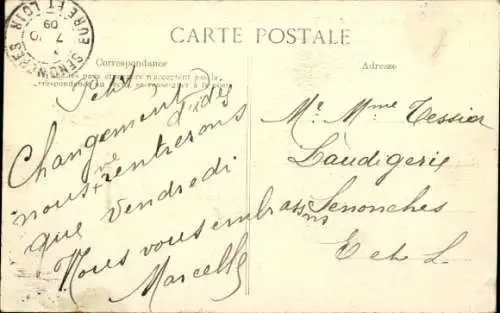 CARTE POSTALE
Correspondance
Adresse
SENONCHES
EURE ET LOIR
7
09
Petit
Changement d'idées
nous ne rentrerons
que vendredi
Nous vous embrassons
Marcelle
Mr. Mme Tessier
Laudigerie
Senonches
E et L.